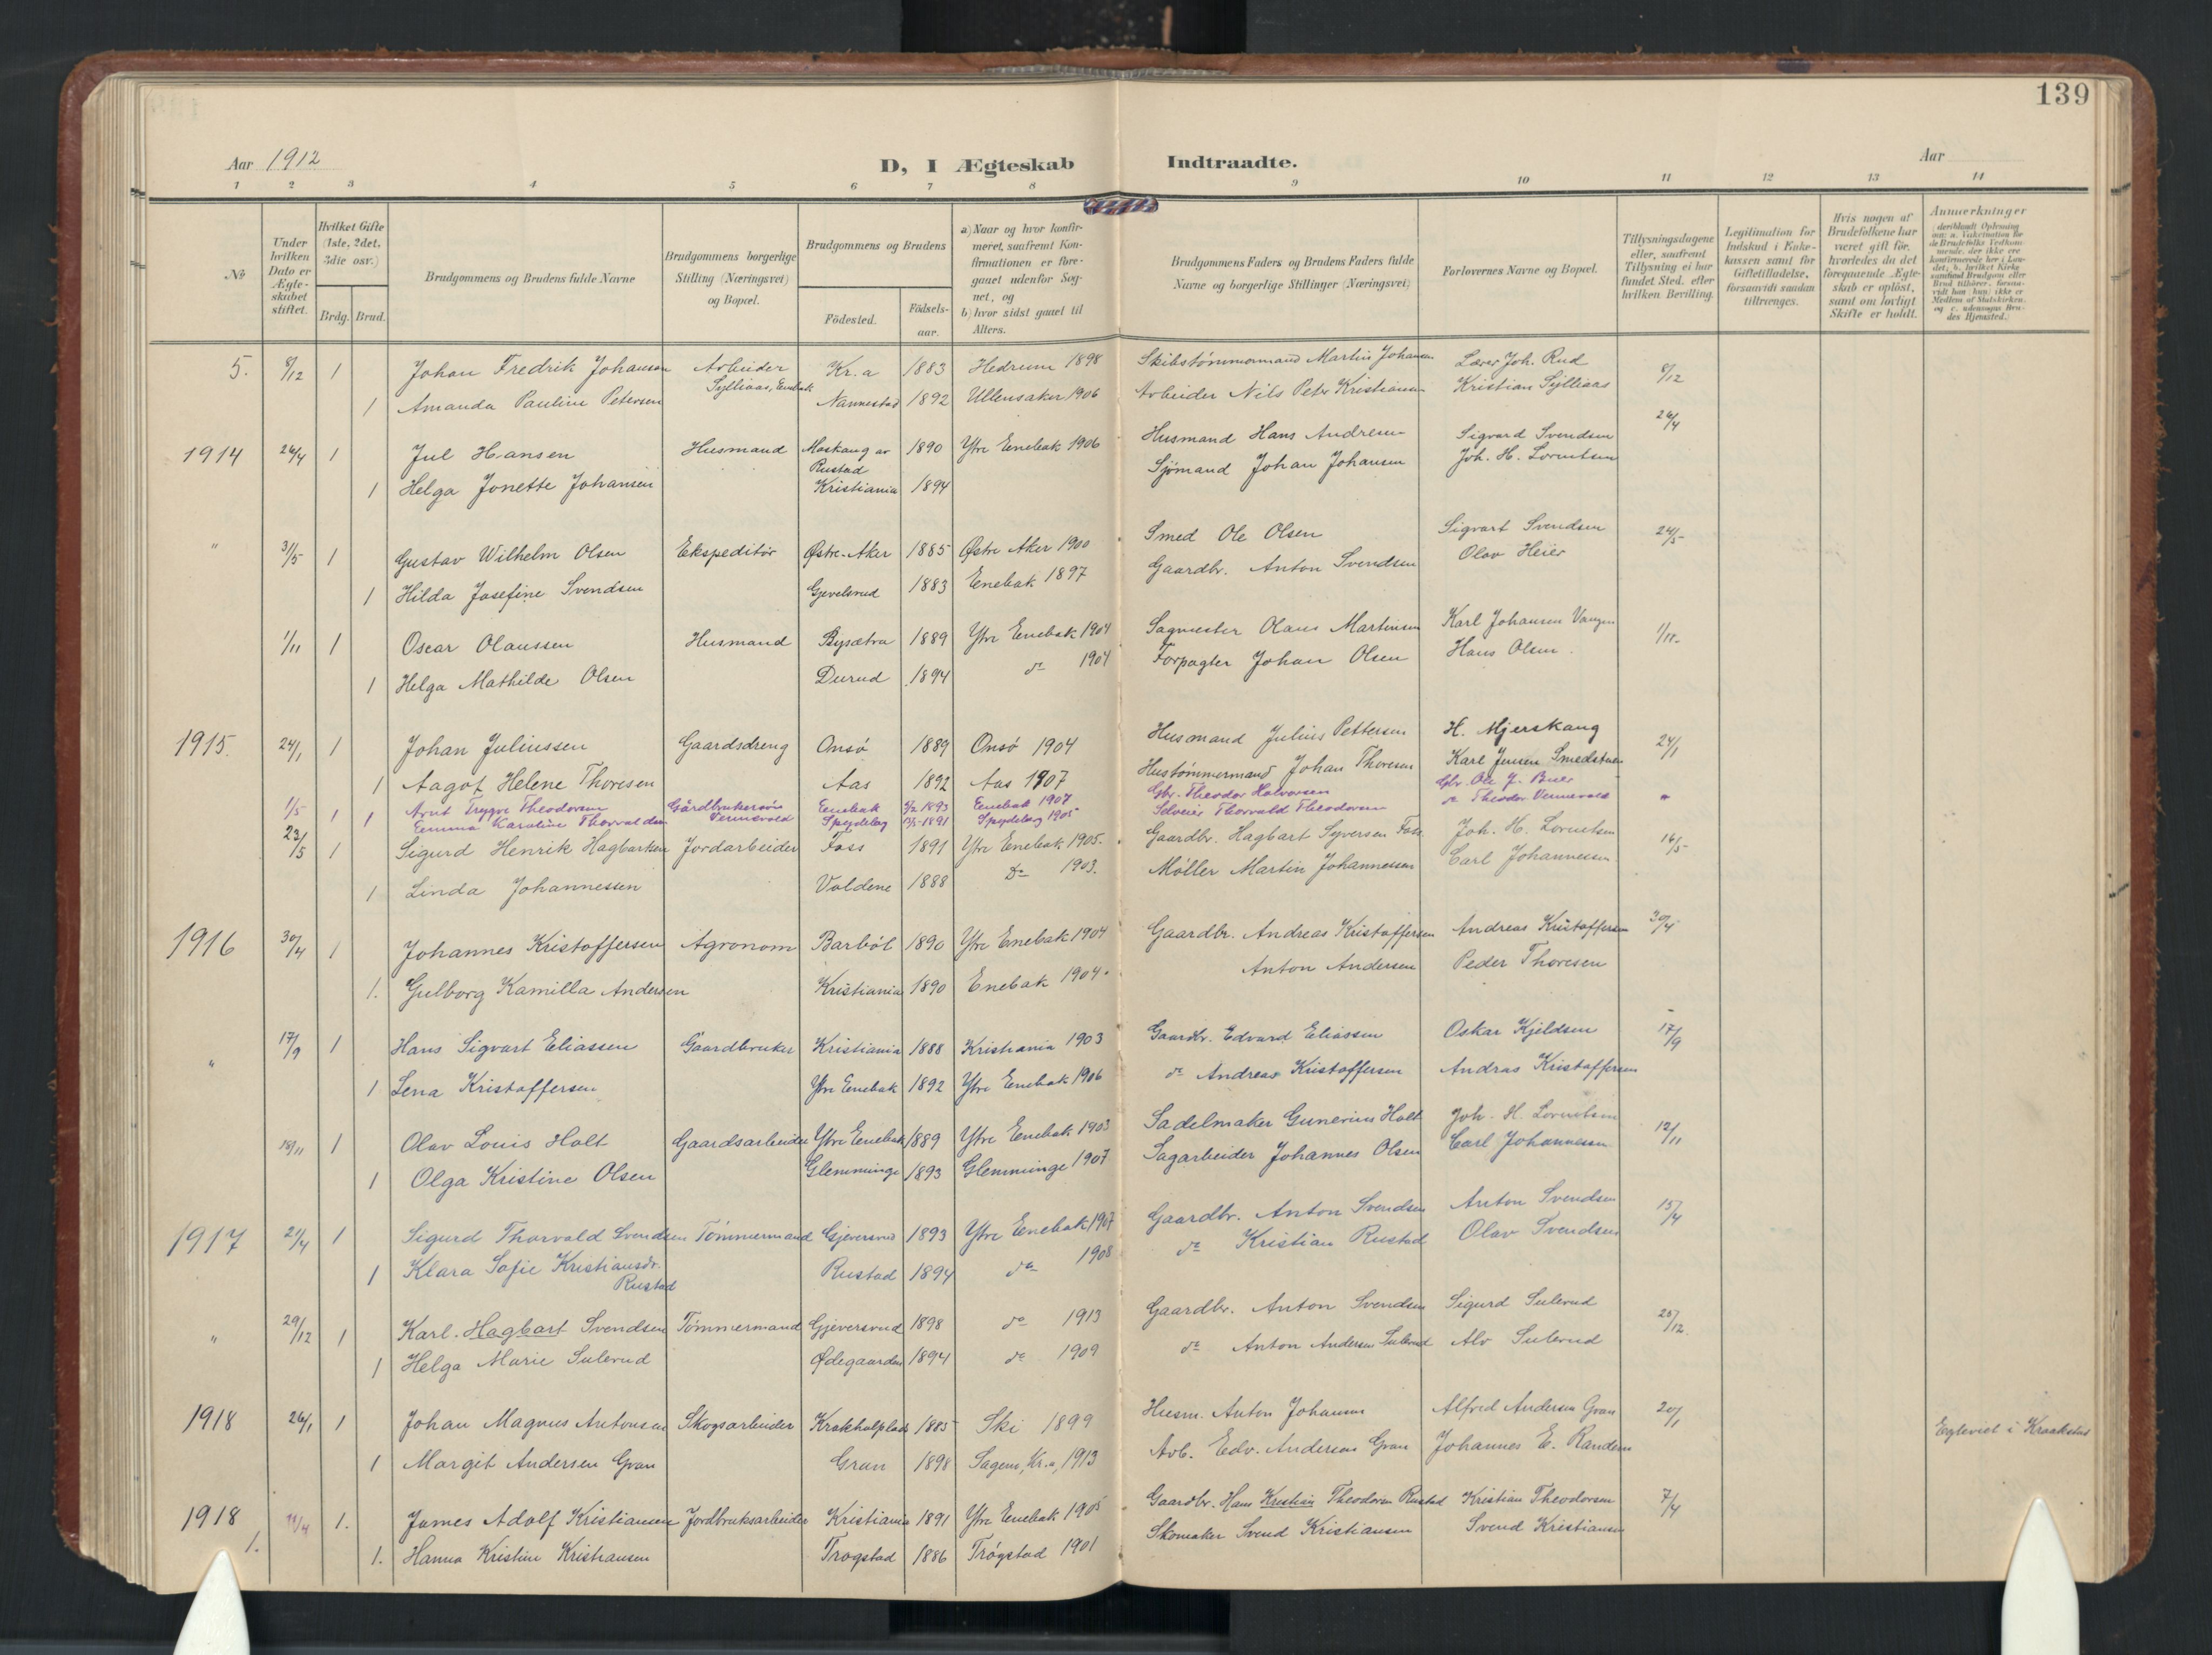 139
Aar 1912
D, I Ægteskab Indtraadte.
Aar
1 2 3 4 5 6 7 8 9 10 11 12 13 14
No.
Under hvilken Dato er Ægteskabet stiftet.
Hvilket Gifte (1ste, 2det, 3die osv.)
Brdg. Brud.
Brudgommens og Brudens fulde Navne
Brudgommens borgerlige Stilling (Næringsvei) og Bopæl.
Brudgommens og Brudens
Fødested.
Fødselsaar.
a) Naar og hvor konfirmeret, saafremt Konfirmationen er foregaaet udenfor Sognet, og
b) hvor sidst gaaet til Alters.
Brudgommens Faders og Brudens Faders fulde Navne og borgerlige Stillinger (Næringsvei)
Forlovernes Navne og Bopæl.
Tillysningsdagene eller, saafremt Tillysning ei har fundet Sted, efter hvilken Bevilling.
Legitimation for Indskud i Enkekassen samt for Giftetilladelse, forsaavidt saadan tiltrænges.
Hvis nogen af Brudefolkene har været gift før, hvorledes da det foregaaende Ægteskab er opløst, samt om lovligt Skifte er holdt.
Anmærkninger
(deriblandt Oplysning om: a. Vakcination for de Brudefolks Vedkommende, der ikke ere konfirmerede her i Landet; b. hvilket Kirkesamfund Brudgom eller Brud tilhører, forsaavidt han (hun) ikke er Medlem af Statskirken, og c. udensogns Brudes Hjemsted.)
5. 8/12 1 Johan Fredrik Johansen Arbeider Kr.a 1883 Hedrum 1898 Skibstømmermand Martin Johansen Lærer Joh. Rud 8/12
Sylliaas, Enebak
1 Amanda Pauline Petersen Nannestad 1892 Ullensaker 1906 Arbeider Nils Peter Kristiansen Kristian Sylliaas
1914 26/4 1 Jul Hansen Husmand Moskaug av Rustad 1890 Ytre Enebak 1906 Husmand Hans Andresen Sigvard Svendsen 26/4
1 Helga Jonette Johansen Kristiania 1894 Sjømand Johan Johansen Joh. H. Lorentsen
" 31/5 1 Gustav Wilhelm Olsen Ekspeditør Østre-Aker 1885 Østre Aker 1900 Smed Ole Olsen Sigvart Svendsen 24/5
1 Hilda Josefine Svendsen Gjevelsrud 1883 Enebak 1897 Gaardbr. Anton Svendsen Olav Heier
1/11 1 Oscar Olaussen Husmand Bysætra 1889 Ytre Enebak 1904 Sagmester Olaus Martinsen Karl Johansen Vangen 1/11
1 Helga Mathilde Olsen Durud 1894 do 1904 Forpagter Johan Olsen Hans Olsen.
1915. 24/1 1 Johan Juliussen Gaardsdreng Onsø 1889 Onsø 1904 Husmand Julius Pettersen H. Mjerskaug 24/1
1 Aagot Helene Thoresen Aas 1892 Aas 1907 Hustømmermand Johan Thoresen Karl Jensen Smedstuen
1/5 1 Arnt Trygve Theodorsen Gårdbrukersøn Enebak 1893 Enebak 1907 Gbr. Theodor Halvorsen Gbr. Ole J. Buer "
1 Emma Karoline Thorvaldsen Vennevold Spydeberg 1891 Spydeberg 1905 Selveier Thorvald Theodorsen do Theodor Vennevold
23/5 1 Sigurd Henrik Hagbartsen Jordarbeider Foss 1891 Ytre Enebak 1905. Gaardbr. Hagbart Syversen Foss Joh. H. Lorentsen 16/5
1 Linda Johannessen Voldene 1888 Do 1903. Møller Martin Johannessen Carl Johannessen
1916 30/4 1 Johannes Kristoffersen Agronom Barbøl 1890 Ytre Enebak 1904 Gaardbr. Andreas Kristoffersen Andreas Kristoffersen 30/4
1. Gulborg Kamilla Andersen Kristiania 1890 Enebak 1904. Anton Andersen Peder Thoresen
" 17/9 1 Hans Sigvart Eliassen Gaardbruker Kristiania 1888 Kristiania 1903 Gaardbr. Edvard Eliassen Oskar Kjeldsen 17/9
1 Lena Kristoffersen Ytre Enebak 1892 Ytre Enebak 1906 do Andreas Kristoffersen Andras Kristoffersen
18/11 1 Olav Louis Holt Gaardsarbeider Ytre Enebak 1889 Ytre Enebak 1903 Sadelmaker Gunerius Holt Joh. H. Lorentsen 12/11
1 Olga Kristine Olsen Glemminge 1893 Glemminge 1907 Sagarbeider Johannes Olsen Carl Johannessen
1917 21/4 1 Sigurd Thorvald Svendsen Tømmermand Gjeversrud 1893 Ytre Enebak 1907 Gaardbr. Anton Svendsen Anton Svendsen 15/4
1 Klara Sofie Kristiansdr. Rustad Rustad 1894 do 1908 do Kristian Rustad Olav Svendsen
" 29/12 1 Karl. Hagbart Svendsen Tømmermand Gjeversrud 1898 do 1913 Gaardbr. Anton Svendsen Sigurd Sulerud 25/12.
1 Helga Marie Sulerud Ødegaarden 1894 do 1909 do Anton Andersen Sulerud Alv Sulerud
1918 26/1 1 Johan Magnus Antonsen Skogsarbeider Krokholplads 1885 Ski 1899 Husm. Anton Johansen Alfred Andersen Gran 20/1
1 Margit Andersen Gran Gran 1898 Sagene, Kr.a, 1913 Arb. Edv. Andersen Gran Johannes E. Randem i Kraakstad
1918 11/4 1. James Adolf Kristiansen Jordbruksarbeider Kristiania 1891 Ytre Enebak 1905 Gaardbr. Hans Kristian Theodorsen Rustad Kristian Theodorsen 7/4
1. 1. Hanna Kristine Kristiansen Trøgstad 1886 Trøgstad 1901 Skomaker Svend Kristiansen Svend Kristiansen